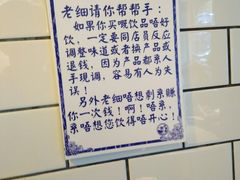 老细请你帮帮手：
如果你买嘅饮品唔好
饮，一定要同店员反应
调整味道或者换产品或
退钱，因为产品都亲人
手现调，容易有人为失
误！
另外老细唔想剩亲赚
你一次钱！啊！唔亲，
亲唔想您饮得唔开心！